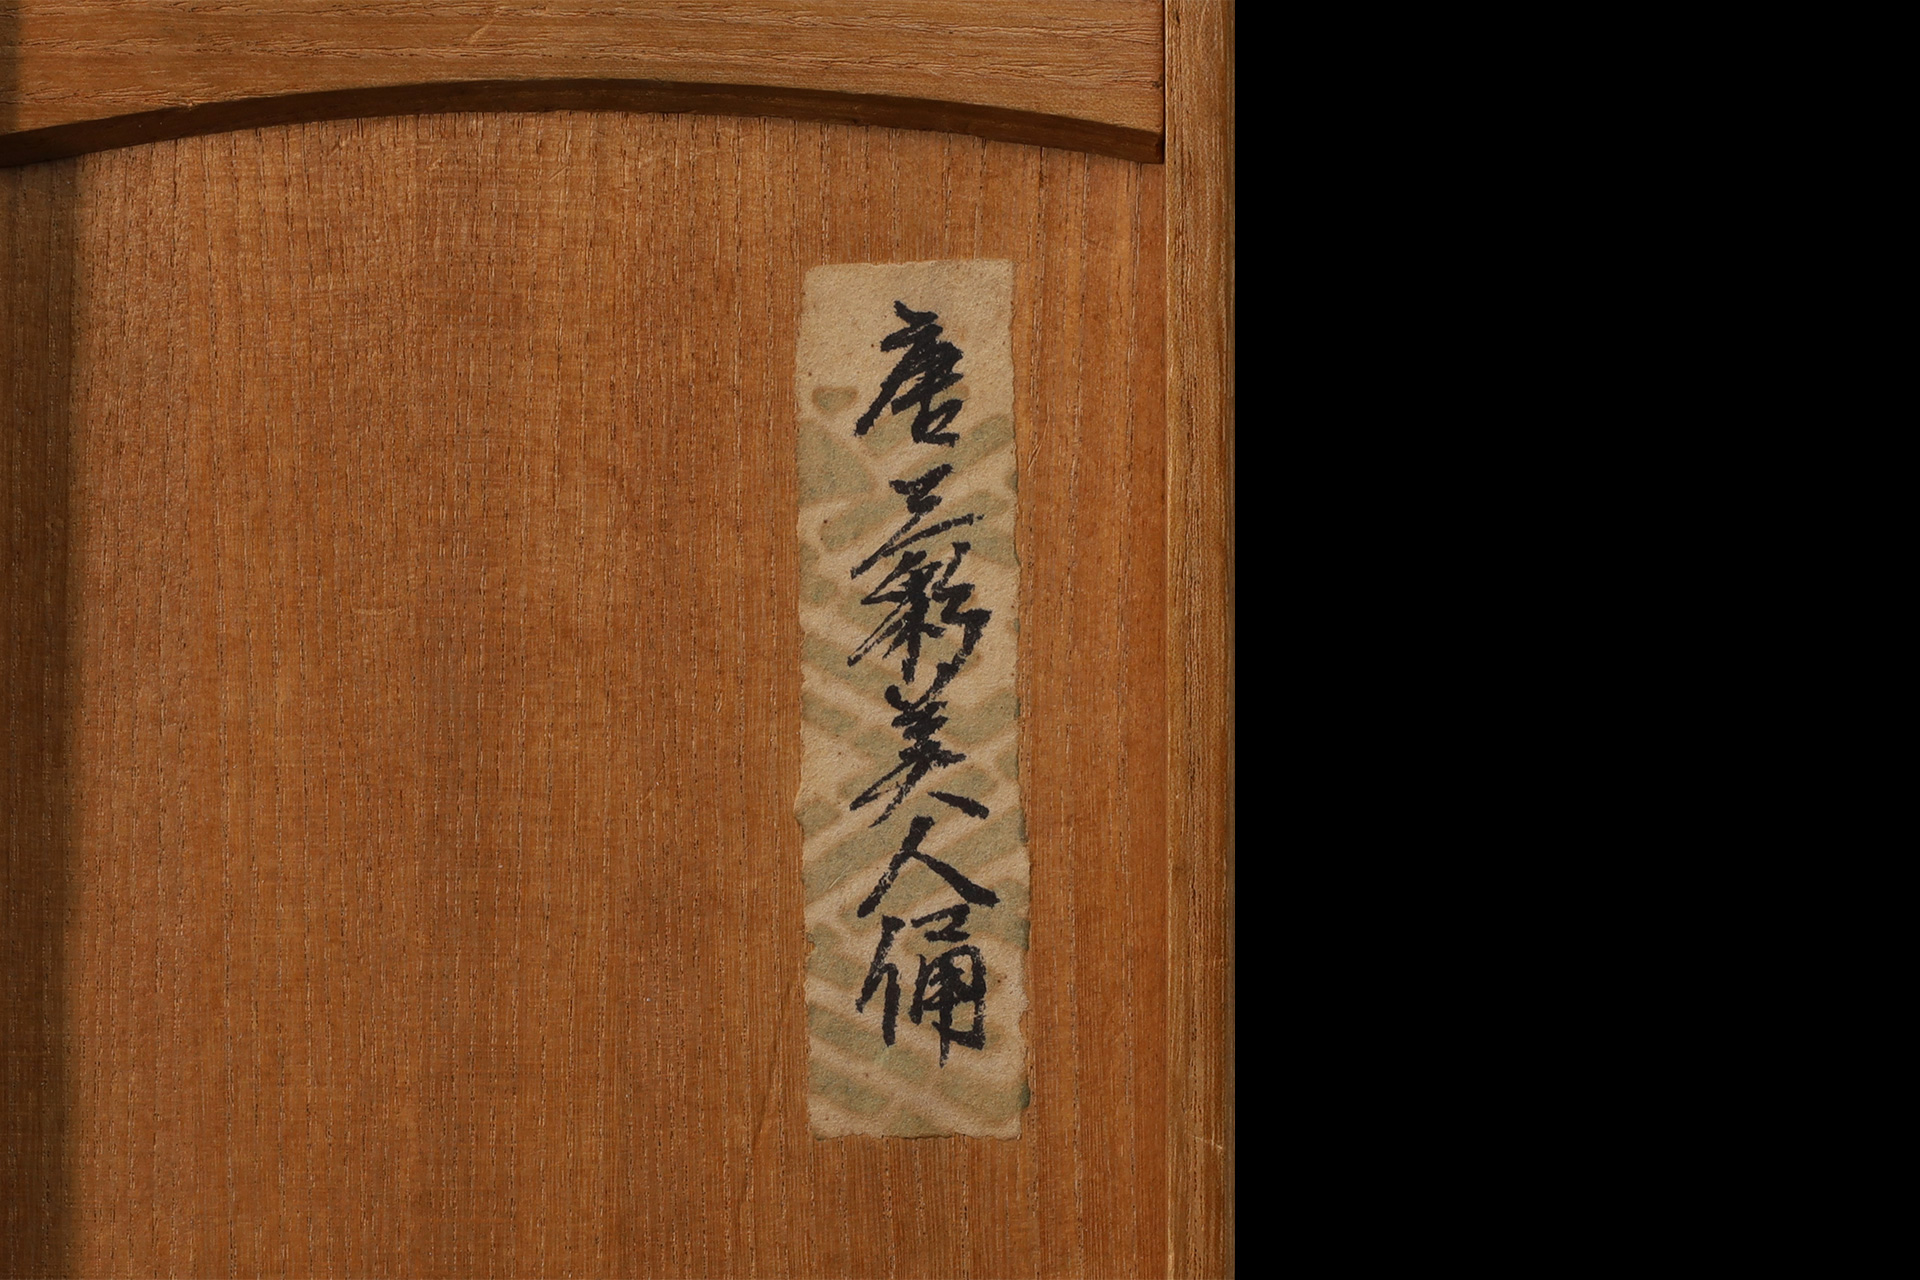 唐三彩美人俑